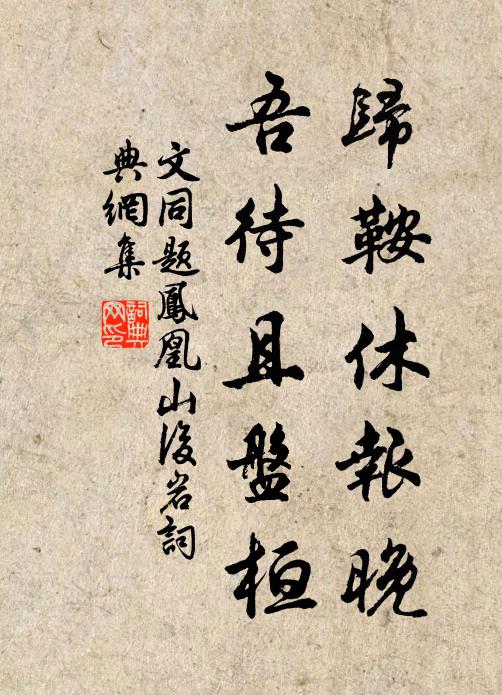 歸鞍休報晚
吾待且盤桓
文同題鳳凰山後岩詞
典網集
詞典
网印